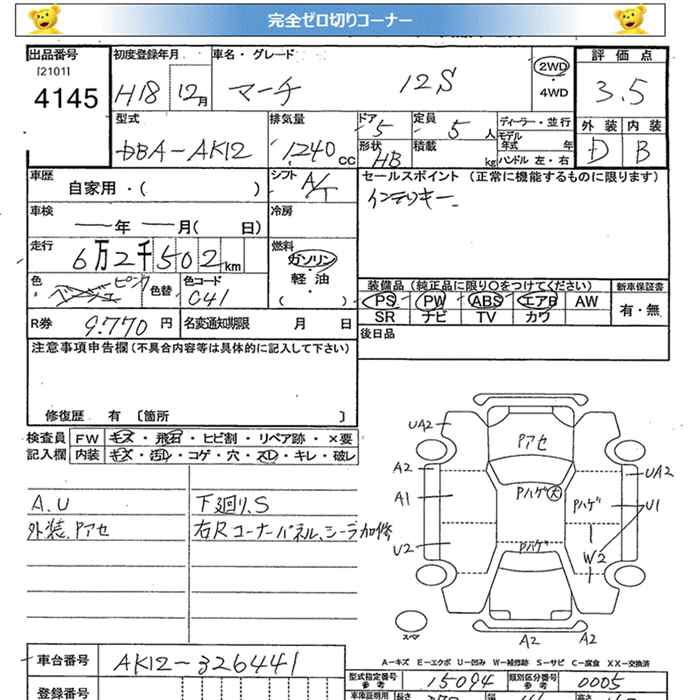 完全ゼロ切りコーナー
出品番号
[2101]
4145
初度登録年月
H18 12月
車名・グレード
マーチ 12S
2WD
・
4WD
評価点
3.5
外装 内装
D B
型式
DBA-AK12
排気量
1,240 CC
ドア 5
形状 HB
定員 5 人
積載 kg
ディーラー・並行
モデル年式 年
ハンドル 左・右
車歴
自家用・( )
シフト A/T
セールスポイント (正常に機能するものに限ります)
インテリキー
車検
年 月( 日)
冷房
走行
6万2千502km
燃料
ガソリン
・
軽油
( )
色 ベージュ ピンク
色替
色コード C41
装備品 (純正品に限り○をつけてください)
新車保証書
PS PW ABS エアB AW
SR ナビ TV カワ
有・無
R券 9.770 円
名変通知期限 月 日
後日品
注意事項申告欄 (不具合内容等は具体的に記入して下さい)
修復歴 有 [箇所 ]
検査員 FW キズ・飛石・ヒビ割・リペア跡・×要
記入欄 内装 キズ・汚レ・コゲ・穴・スレ・キレ・破レ
A.U
外装、Pアセ
下廻り、S
右Rコーナーパネル、シーラー加修
UA2
A2
A1
U2
Pアセ
Pハゲ 大
Pハゲ
Pハゲ
UA2
U1
W2
A2
A2
スペア
A-キズ E-エクボ U-凹み W-補修跡 S-サビ C-腐食 XX-交換済
車台番号 AK12-326441
型式指定番号 参考 15094
類別区分番号 参考 0005
登録番号
車検証明用
長さ
幅
高さ